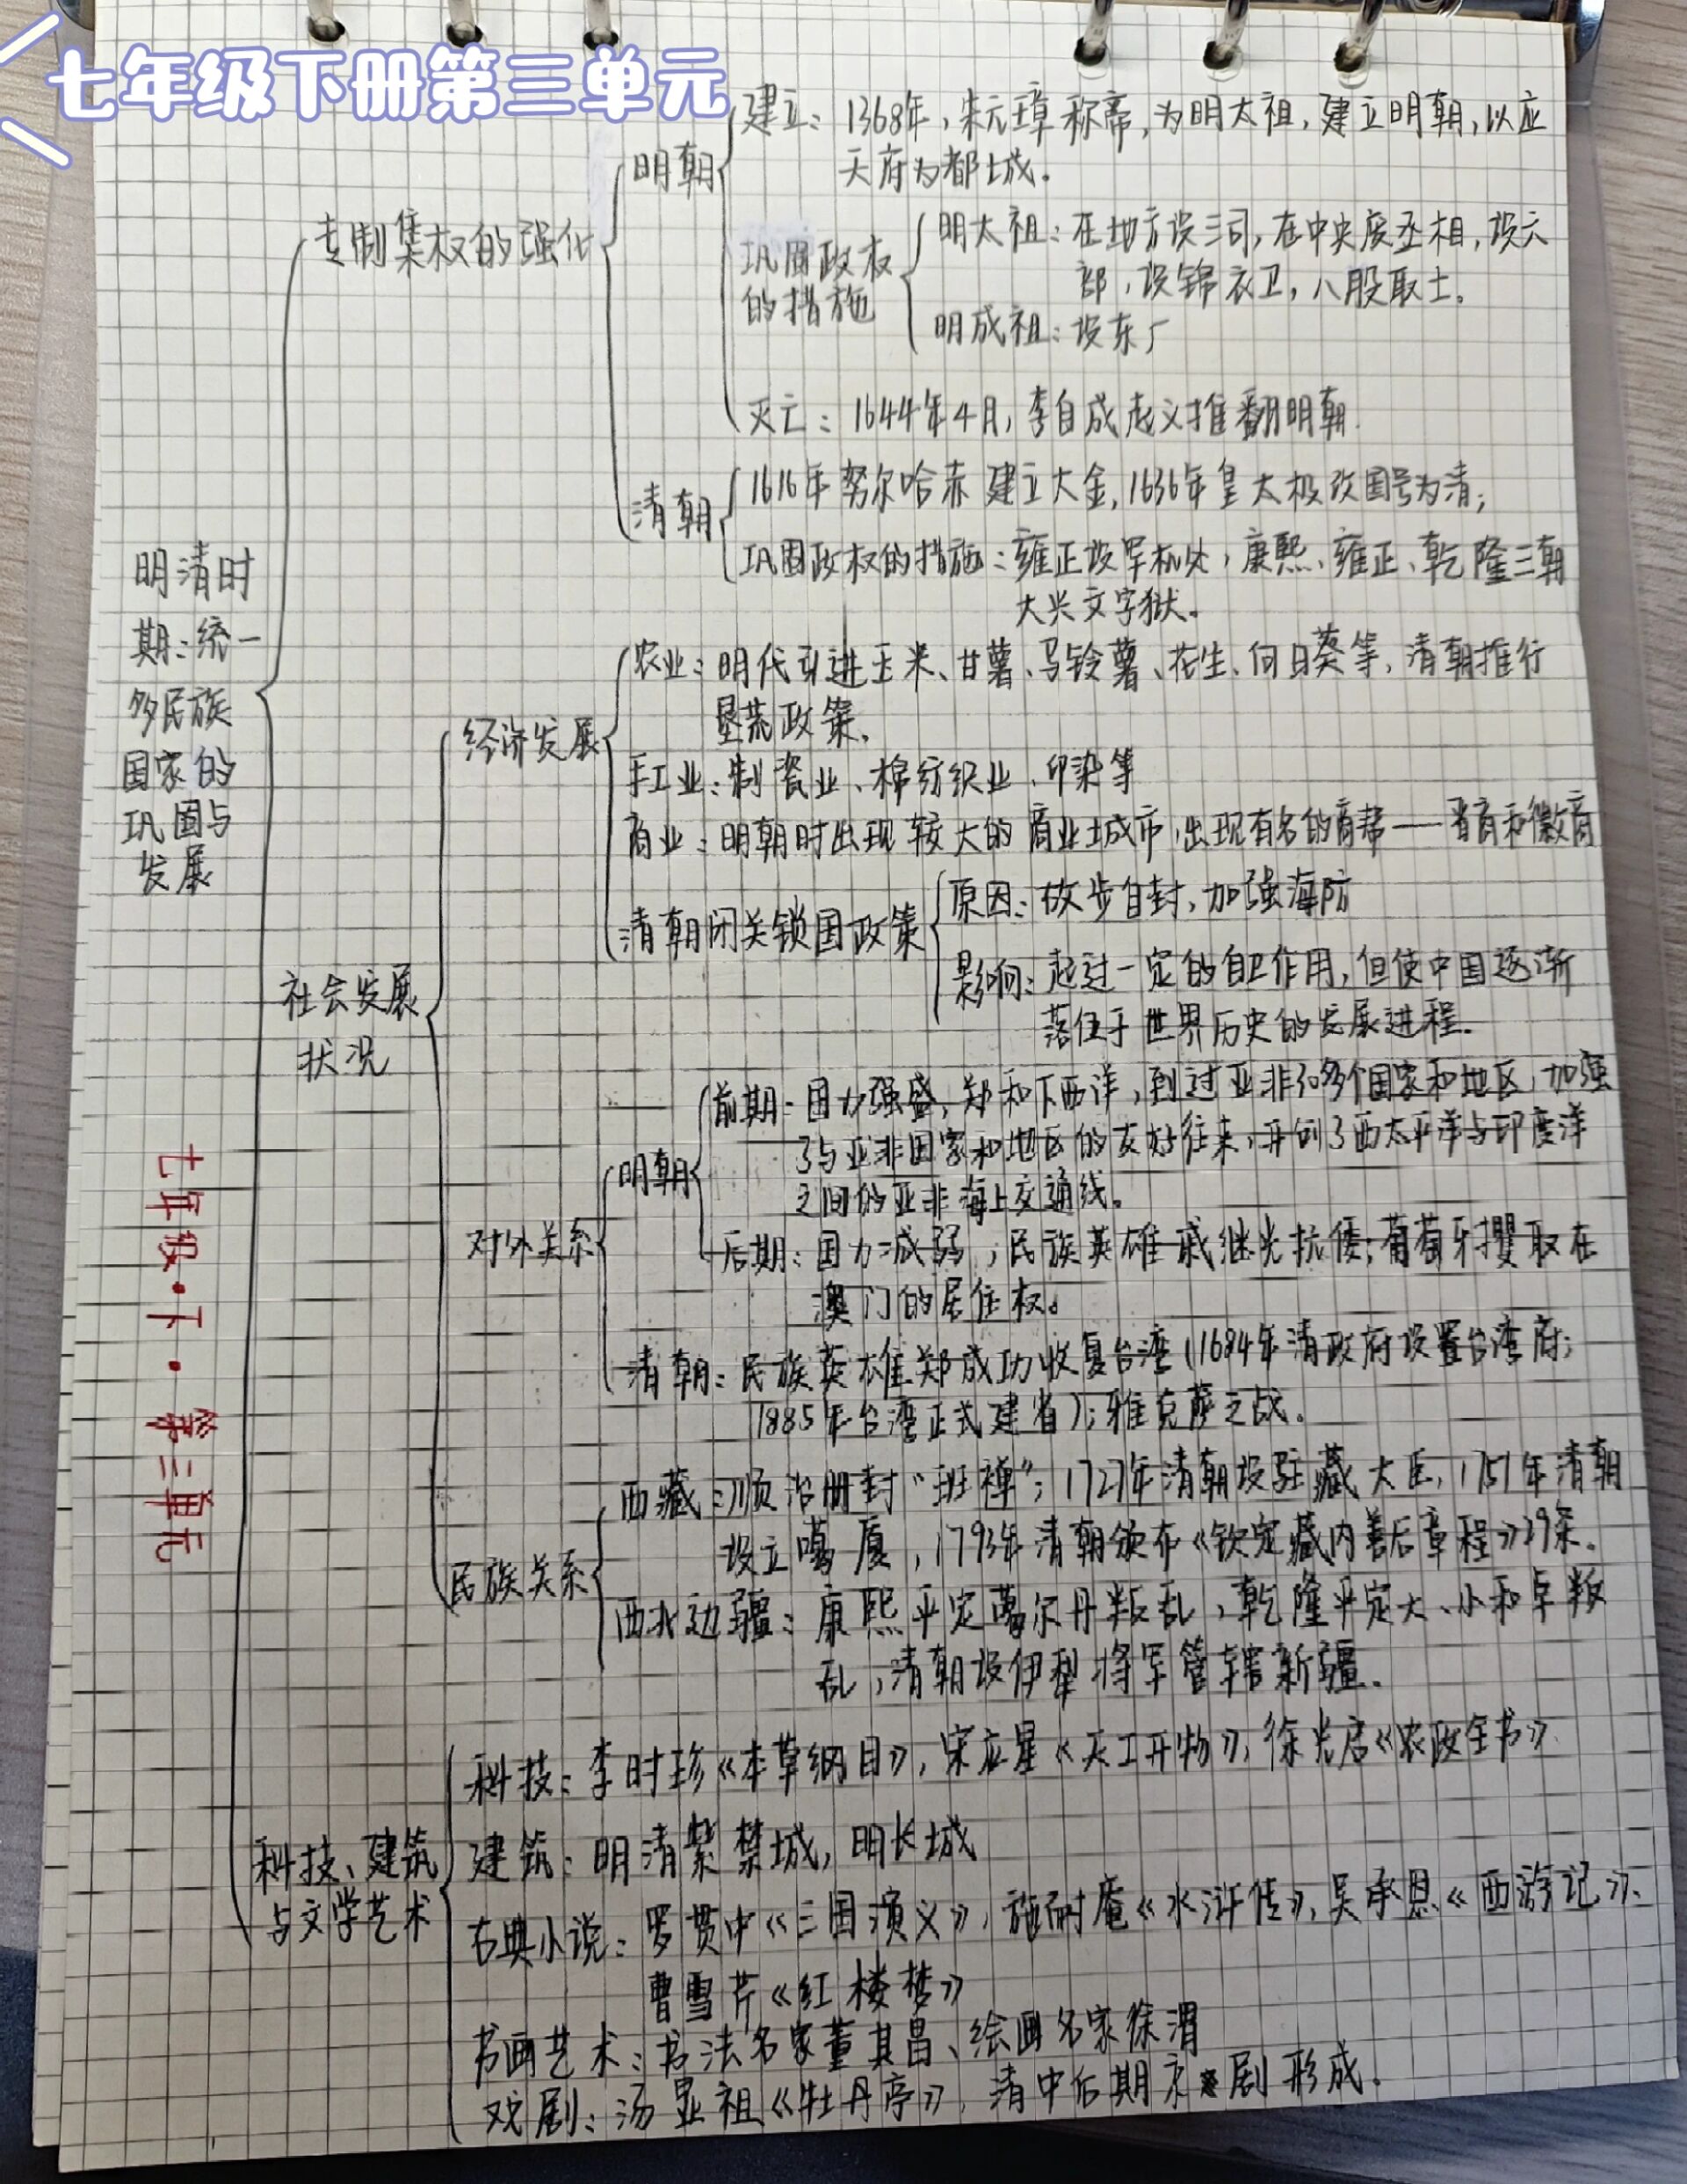 七年级下册第三单元
明清时
期:统一
多民族
国家的
巩固与
发展
七年级·下·第三单元
专制集权的强化
明朝
建立:1368年,朱元璋称帝,为明太祖,建立明朝,以应
天府为都城.
巩固政权
的措施
明太祖:在地方设三司,在中央废丞相,设六
部,设锦衣卫,八股取士。
明成祖:设东厂
灭亡:1644年4月,李自成起义推翻明朝.
清朝
1616年努尔哈赤建立大金,1636年皇太极改国号为清;
巩固政权的措施:雍正设军机处,康熙、雍正、乾隆三朝
大兴文字狱。
社会发展
状况
经济发展
农业:明代引进玉米、甘薯、马铃薯、花生、向日葵等,清朝推行
垦荒政策.
手工业:制瓷业、棉纺织业、印染等
商业:明朝时出现较大的商业城市,出现有名的商帮——晋商和徽商
清朝闭关锁国政策
原因:故步自封,加强海防
影响:起过一定的自卫作用,但使中国逐渐
落伍于世界历史的发展进程.
对外关系
明朝
前期:国力强盛,郑和下西洋,到过亚非30多个国家和地区,加强
了与亚非国家和地区的友好往来,开创了西太平洋与印度洋
之间的亚非海上交通线。
后期:国力减弱,民族英雄戚继光抗倭;葡萄牙攫取在
澳门的居住权。
清朝:民族英雄郑成功收复台湾(1684年清政府设置台湾府;
1885年台湾正式建省);雅克萨之战。
民族关系
西藏:顺治册封“班禅”;1727年清朝设驻藏大臣,1751年清朝
设立噶厦,1793年清朝颁布《钦定藏内善后章程》29条。
西北边疆:康熙平定噶尔丹叛乱,乾隆平定大、小和卓叛
乱,清朝设伊犁将军管辖新疆.
科技、建筑
与文学艺术
科技:李时珍《本草纲目》,宋应星《天工开物》,徐光启《农政全书》.
建筑:明清紫禁城,明长城
古典小说:罗贯中《三国演义》,施耐庵《水浒传》,吴承恩《西游记》、
曹雪芹《红楼梦》
书画艺术:书法名家董其昌、绘画名家徐渭
戏剧:汤显祖《牡丹亭》,清中后期京剧形成.